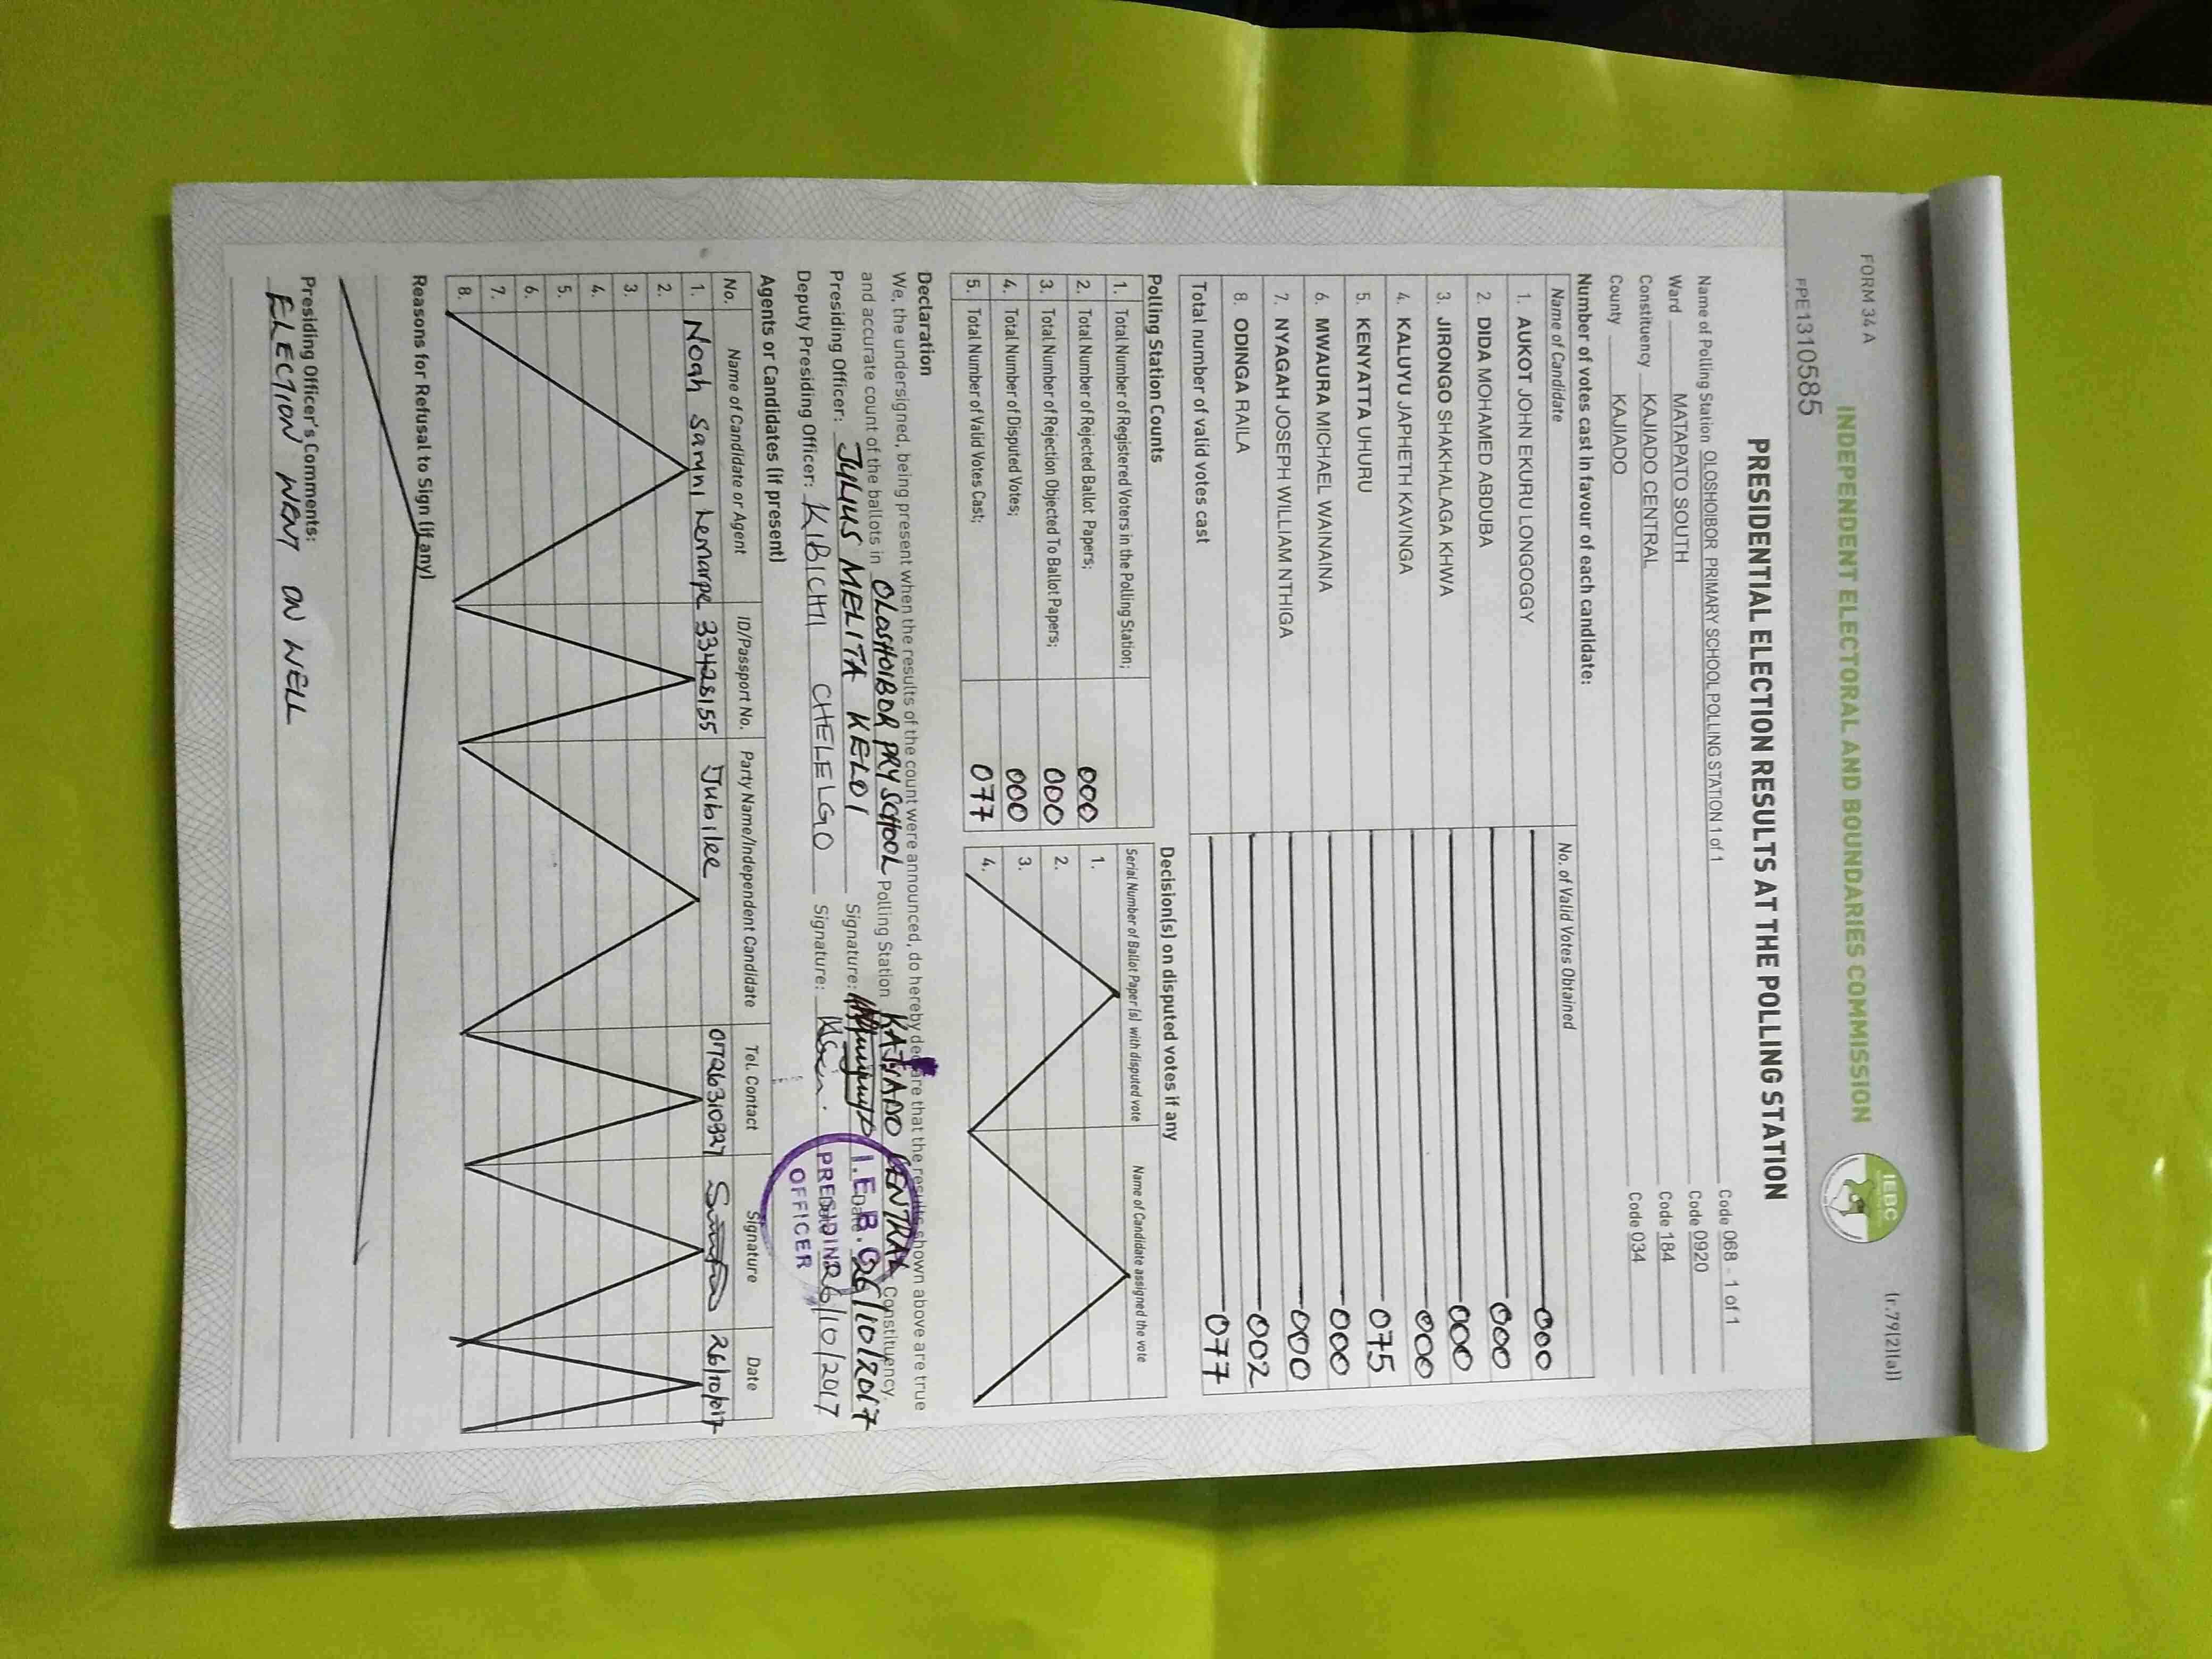 FORM 34 A
(r.79(2)(a))
INDEPENDENT ELECTORAL AND BOUNDARIES COMMISSION
IEBC
PPE1310585
PRESIDENTIAL ELECTION RESULTS AT THE POLLING STATION
Name of Polling Station OLOSHOIBOR PRIMARY SCHOOL POLLING STATION 1 of 1 Code 068 - 1 of 1
Ward MATAPATO SOUTH Code 0920
Constituency KAJIADO CENTRAL Code 184
County KAJIADO Code 034
Number of votes cast in favour of each candidate:
Name of Candidate No. of Valid Votes Obtained
1. AUKOT JOHN EKURU LONGOGGY 000
2. DIDA MOHAMED ABDUBA 000
3. JIRONGO SHAKHALAGA KHWA 000
4. KALUYU JAPHETH KAVINGA 000
5. KENYATTA UHURU 075
6. MWAURA MICHAEL WAINAINA 000
7. NYAGAH JOSEPH WILLIAM NTHIGA 000
8. ODINGA RAILA 002
Total number of valid votes cast 077
Polling Station Counts
1. Total Number of Registered Voters in the Polling Station;
2. Total Number of Rejected Ballot Papers; 000
3. Total Number of Rejection Objected To Ballot Papers; 000
4. Total Number of Disputed Votes; 000
5. Total Number of Valid Votes Cast; 077
Decision(s) on disputed votes if any
Serial Number of Ballot Paper(s) with disputed vote Name of Candidate assigned the vote
1.
2.
3.
4.
Declaration
We, the undersigned, being present when the results of the count were announced, do hereby declare that the results shown above are true
and accurate count of the ballots in OLOSHOIBOR PRY SCHOOL Polling Station KAJIADO CENTRAL Constituency.
Presiding Officer: JULIUS MELITA KELOI Signature: Date 26/10/2017
Deputy Presiding Officer: KIBICHII CHELELGO Signature: Date 26/10/2017
I.E.B.C
PRESIDING
OFFICER
Agents or Candidates (if present)
No. Name of Candidate or Agent ID/Passport No. Party Name/Independent Candidate Tel. Contact Signature Date
1. Noah 33428155 Jubilee 0726310327 26/10/017
2.
3.
4.
5.
6.
7.
8.
Reasons for Refusal to Sign (if any)
Presiding Officer's Comments:
ELECTION WENT ON WELL